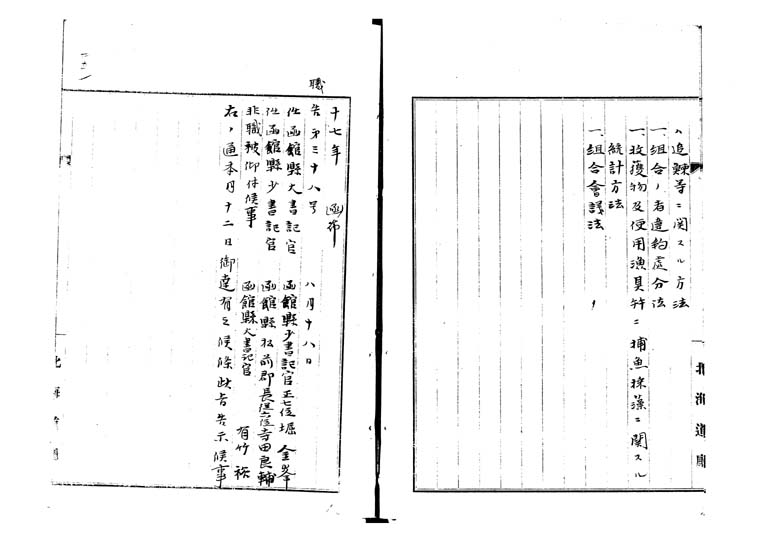 ハ追鰊等ニ関スル方法
一、組合ノ者違約處分法
一、收獲物及使用漁具幷ニ捕魚採藻ニ関スル
統計方法
一、組合會議法
北海道廳
職
十七年 函布
告第三十八号 八月十八日
任函館縣大書記官 函館縣少書記官正七位堀金峯
任函館縣少書記官 函館縣松前郡長従六位寺田良輔
非職被仰付候事 函館縣大書記官 有竹裕
右ノ通本月十二日御達有之候條此旨告示候事